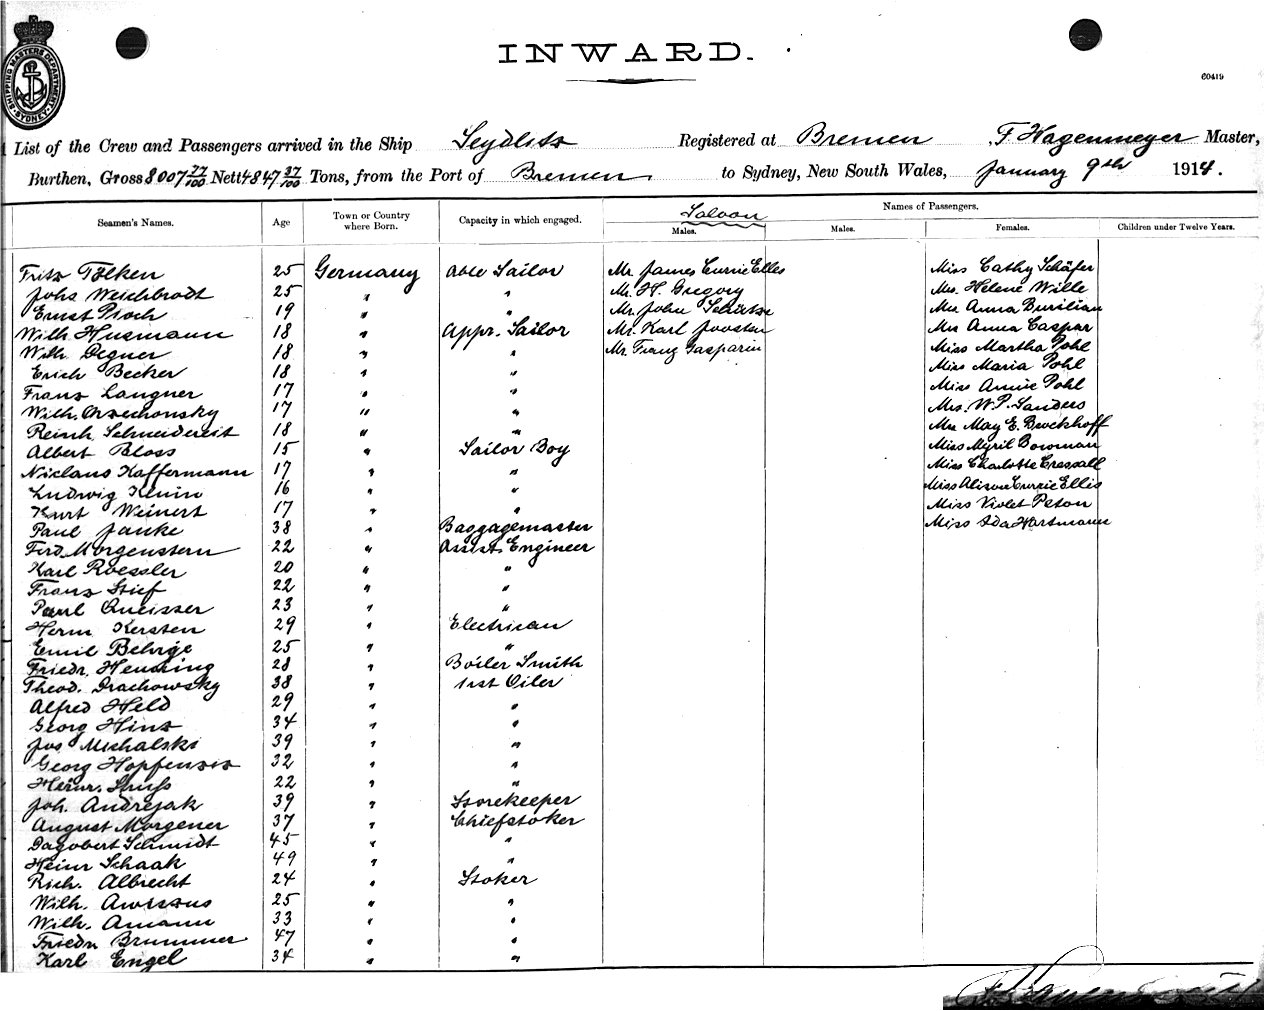 SHIPPING MASTERS DEPARTMENT SYDNEY
INWARD.
60419
List of the Crew and Passengers arrived in the Ship Seydlitz Registered at Bremen F Hagenmeyer Master,
Burthen, Gross 8007 77/100 Nett 4847 37/100 Tons, from the Port of Bremen to Sydney, New South Wales, January 9th 1914.
Seamen's Names. Age Town or Country where Born. Capacity in which engaged. Saloon Names of Passengers.
Males. Males. Females. Children under Twelve Years.
Fritz Tölken 25 Germany Able Sailor Mr. James Currie Elles Miss Cathy Schäfer
Johs Weichbrodt 25 " " Mr. H. Gregory Mrs. Helene Wille
Ernst Ploch 19 " " Mr. John Schütze Mrs Anna Bunilian
Wilh. Husmann 18 " Appr. Sailor Mr. Karl Joosten Mrs Anna Caspar
Wilh. Degner 18 " " Mr. Franz Gasparin Miss Martha Pohl
Erich Becker 18 " " Miss Maria Pohl
Franz Langner 17 " " Miss Annie Pohl
Wilh. Orzechonsky 17 " " Mrs. W. P. Sanders
Reinh. Schneidereit 18 " " Mrs May E. Brockhoff
Albert Bloss 15 " Sailor Boy Miss Myril Bowman
Niclaus Kaffermann 17 " " Miss Charlotte Cressall
Ludwig 16 " " Miss Alison Currie Ellis
Kurt Weinert 17 " " Miss Violet Peton
Paul Janke 38 " Baggagemaster Miss Ida Hartmann
Ferd. Morgenstern 22 " Assist. Engineer
Karl Roessler 20 " "
Franz Stief 22 " "
Paul Queisser 23 " "
Herm Kersten 29 " Electrican
Emil Behrge 25 " "
Friedr. Henning 28 " Boiler Smith
Theod. Drachowsky 38 " 1rst Oiler
Alfred Held 29 " "
Georg Hins 34 " "
Jos Michalski 39 " "
Georg Hopfensis 32 " "
Heinr. 22 " "
Joh. Andrejak 39 " Storekeeper
August Morgener 37 " Chiefstoker
Dagobert Schmidt 45 " "
Heinr Schaak 49 " "
Rich. Albrecht 24 " Stoker
Wilh. Awissus 25 " "
Wilh. Amann 33 " "
Friedr Brummer 47 " "
Karl Engel 34 " "